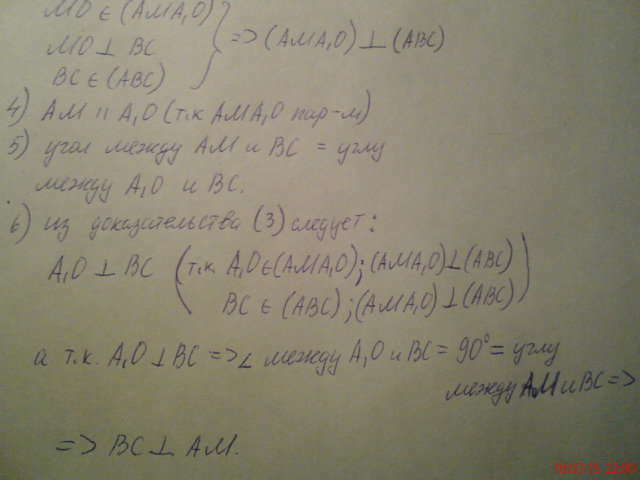 MO ∈ (AMA₁O)
MO ⊥ BC
BC ∈ (ABC)
} => (AMA₁O) ⊥ (ABC)
4) AM || A₁O (т.к AMA₁O пар-м)
5) угол между AM и BC = углу
между A₁O и BC.
6) из доказательства (3) следует:
A₁O ⊥ BC (т.к. A₁O ∈ (AMA₁O); (AMA₁O) ⊥ (ABC)
BC ∈ (ABC); (AMA₁O) ⊥ (ABC))
а т.к. A₁O ⊥ BC => ∠ между A₁O и BC = 90° = углу
между AM и BC =>
=> BC ⊥ AM.